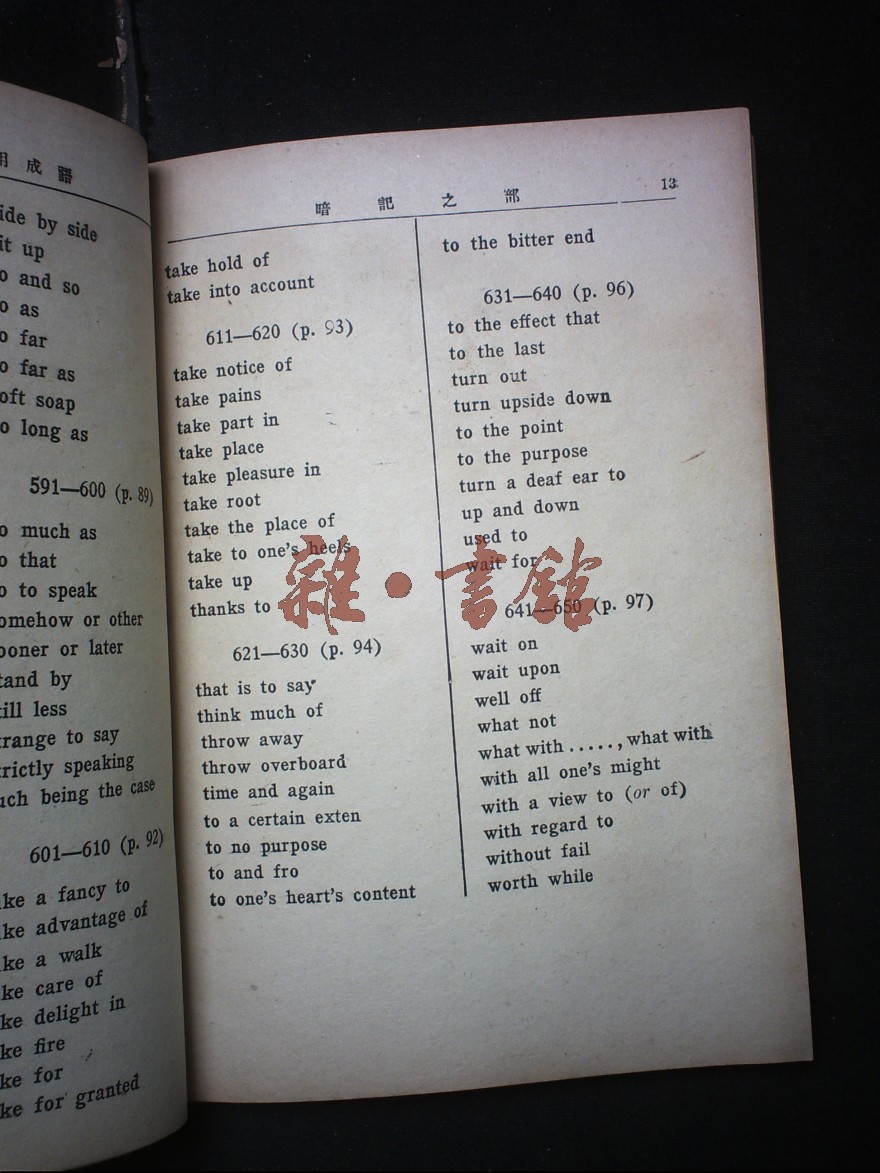 用成語
ide by side
it up
o and so
o as
o far
o far as
oft soap
o long as
591—600 (p. 89)
o much as
o that
o to speak
omehow or other
ooner or later
tand by
till less
trange to say
trictly speaking
uch being the case
601—610 (p. 92)
ke a fancy to
ke advantage of
ke a walk
ke care of
ke delight in
ke fire
ke for
ke for granted
暗記之部 13
take hold of
take into account
611—620 (p. 93)
take notice of
take pains
take part in
take place
take pleasure in
take root
take the place of
take to one's heels
take up
thanks to
621—630 (p. 94)
that is to say
think much of
throw away
throw overboard
time and again
to a certain exten
to no purpose
to and fro
to one's heart's content
to the bitter end
631—640 (p. 96)
to the effect that
to the last
turn out
turn upside down
to the point
to the purpose
turn a deaf ear to
up and down
used to
wait for
641—650 (p. 97)
wait on
wait upon
well off
what not
what with ....., what with
with all one's might
with a view to (or of)
with regard to
without fail
worth while
雜·書館